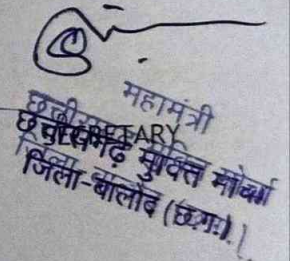 महामंत्री
SECRETARY
छत्तीसगढ़ मुक्ति मोर्चा
जिला-बालोद (छ.ग.)